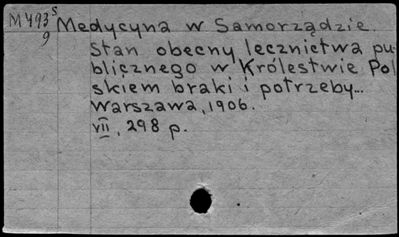 M493⁵ Medycyna w Samorządzie.
9
Stan obecny lecznictwa pu-
blicznego w Królestwie Pol
skiem braki i potrzeby...
Warszawa, 1906.
VII, 298 p.